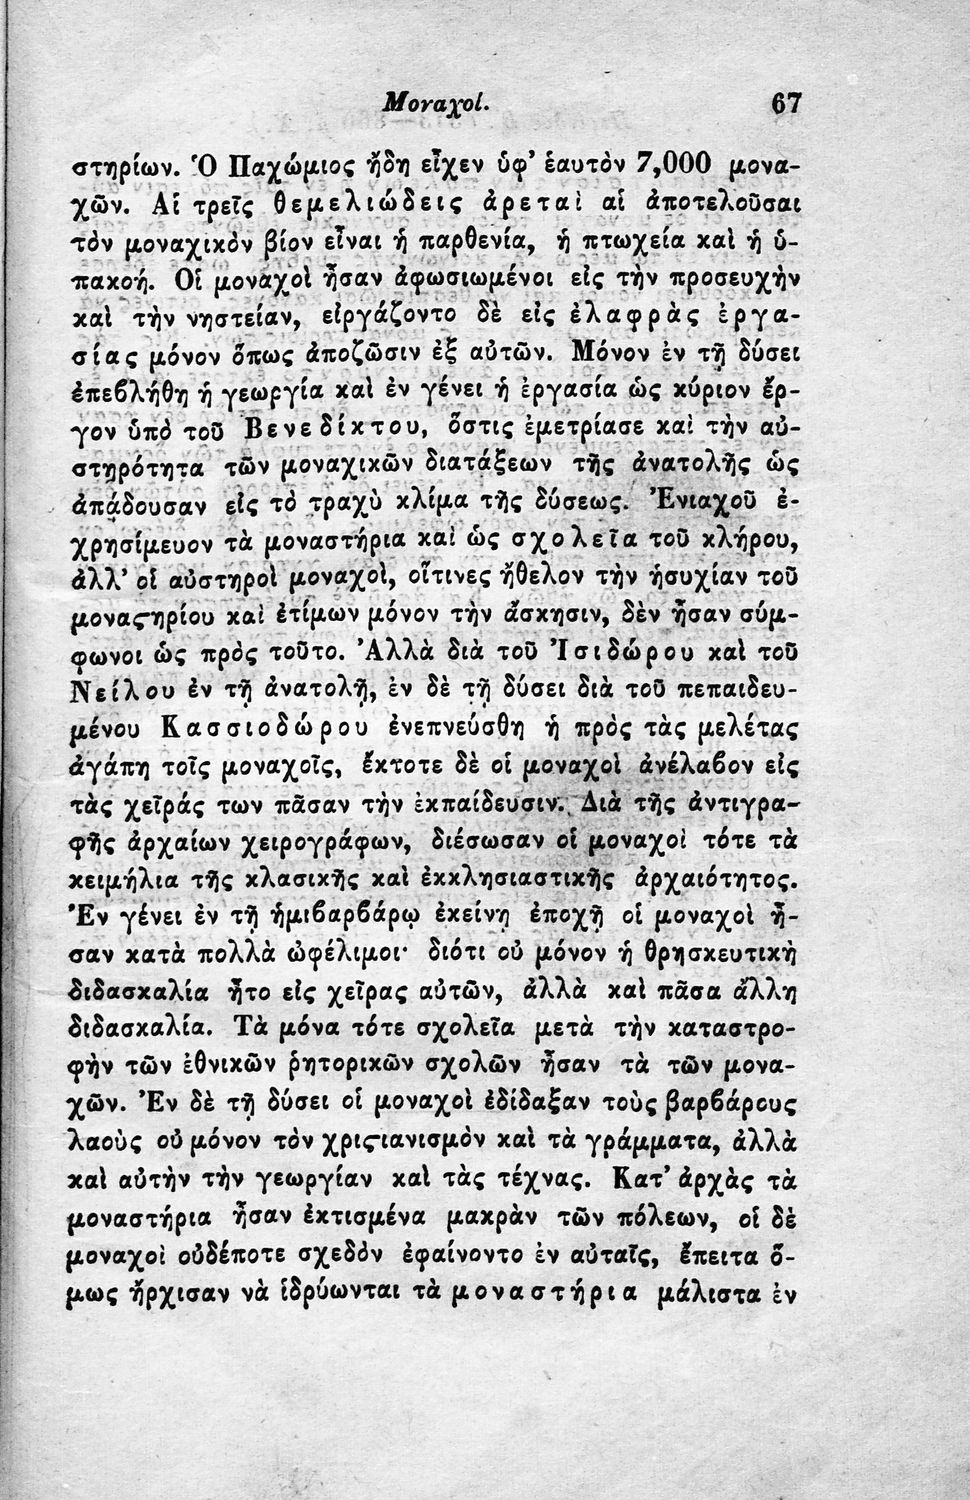 Μοναχοί. 67
στηρίων. Ὁ Παχώμιος ἤδη εἶχεν ὑφ' ἑαυτὸν 7,000 μονα-
χῶν. Αἱ τρεῖς θεμελιώδεις ἀρεταὶ αἱ ἀποτελοῦσαι
τὸν μοναχικὸν βίον εἶναι ἡ παρθενία, ἡ πτωχεία καὶ ἡ ὑ-
πακοή. Οἱ μοναχοὶ ἦσαν ἀφωσιωμένοι εἰς τὴν προσευχὴν
καὶ τὴν νηστείαν, εἰργάζοντο δὲ εἰς ἐλαφρὰς ἐργα-
σίας μόνον ὅπως ἀποζῶσιν ἐξ αὐτῶν. Μόνον ἐν τῇ δύσει
ἐπεβλήθη ἡ γεωργία καὶ ἐν γένει ἡ ἐργασία ὡς κύριον ἔρ-
γον ὑπὸ τοῦ Βενεδίκτου, ὅστις ἐμετρίασε καὶ τὴν αὐ-
στηρότητα τῶν μοναχικῶν διατάξεων τῆς ἀνατολῆς ὡς
ἀπᾴδουσαν εἰς τὸ τραχὺ κλίμα τῆς δύσεως. Ἐνιαχοῦ ἐ-
χρησίμευον τὰ μοναστήρια καὶ ὡς σχολεῖα τοῦ κλήρου,
ἀλλ' οἱ αὐστηροὶ μοναχοί, οἵτινες ἤθελον τὴν ἡσυχίαν τοῦ
μοναϛηρίου καὶ ἐτίμων μόνον τὴν ἄσκησιν, δὲν ἦσαν σύμ-
φωνοι ὡς πρὸς τοῦτο. Ἀλλὰ διὰ τοῦ Ἰσιδώρου καὶ τοῦ
Νείλου ἐν τῇ ἀνατολῇ, ἐν δὲ τῇ δύσει διὰ τοῦ πεπαιδευ-
μένου Κασσιοδώρου ἐνεπνεύσθη ἡ πρὸς τὰς μελέτας
ἀγάπη τοῖς μοναχοῖς, ἔκτοτε δὲ οἱ μοναχοὶ ἀνέλαβον εἰς
τὰς χεῖράς των πᾶσαν τὴν ἐκπαίδευσιν. Διὰ τῆς ἀντιγρα-
φῆς ἀρχαίων χειρογράφων, διέσωσαν οἱ μοναχοὶ τότε τὰ
κειμήλια τῆς κλασικῆς καὶ ἐκκλησιαστικῆς ἀρχαιότητος.
Ἐν γένει ἐν τῇ ἡμιβαρβάρῳ ἐκείνῃ ἐποχῇ οἱ μοναχοὶ ἦ-
σαν κατὰ πολλὰ ὠφέλιμοι· διότι οὐ μόνον ἡ θρησκευτικὴ
διδασκαλία ἦτο εἰς χεῖρας αὐτῶν, ἀλλὰ καὶ πᾶσα ἄλλη
διδασκαλία. Τὰ μόνα τότε σχολεῖα μετὰ τὴν καταστρο-
φὴν τῶν ἐθνικῶν ῥητορικῶν σχολῶν ἦσαν τὰ τῶν μονα-
χῶν. Ἐν δὲ τῇ δύσει οἱ μοναχοὶ ἐδίδαξαν τοὺς βαρβάρους
λαοὺς οὐ μόνον τὸν χριϛιανισμὸν καὶ τὰ γράμματα, ἀλλὰ
καὶ αὐτὴν τὴν γεωργίαν καὶ τὰς τέχνας. Κατ' ἀρχὰς τὰ
μοναστήρια ἦσαν ἐκτισμένα μακρὰν τῶν πόλεων, οἱ δὲ
μοναχοὶ οὐδέποτε σχεδὸν ἐφαίνοντο ἐν αὐταῖς, ἔπειτα ὅ-
μως ἤρχισαν νὰ ἱδρύωνται τὰ μοναστήρια μάλιστα ἐν